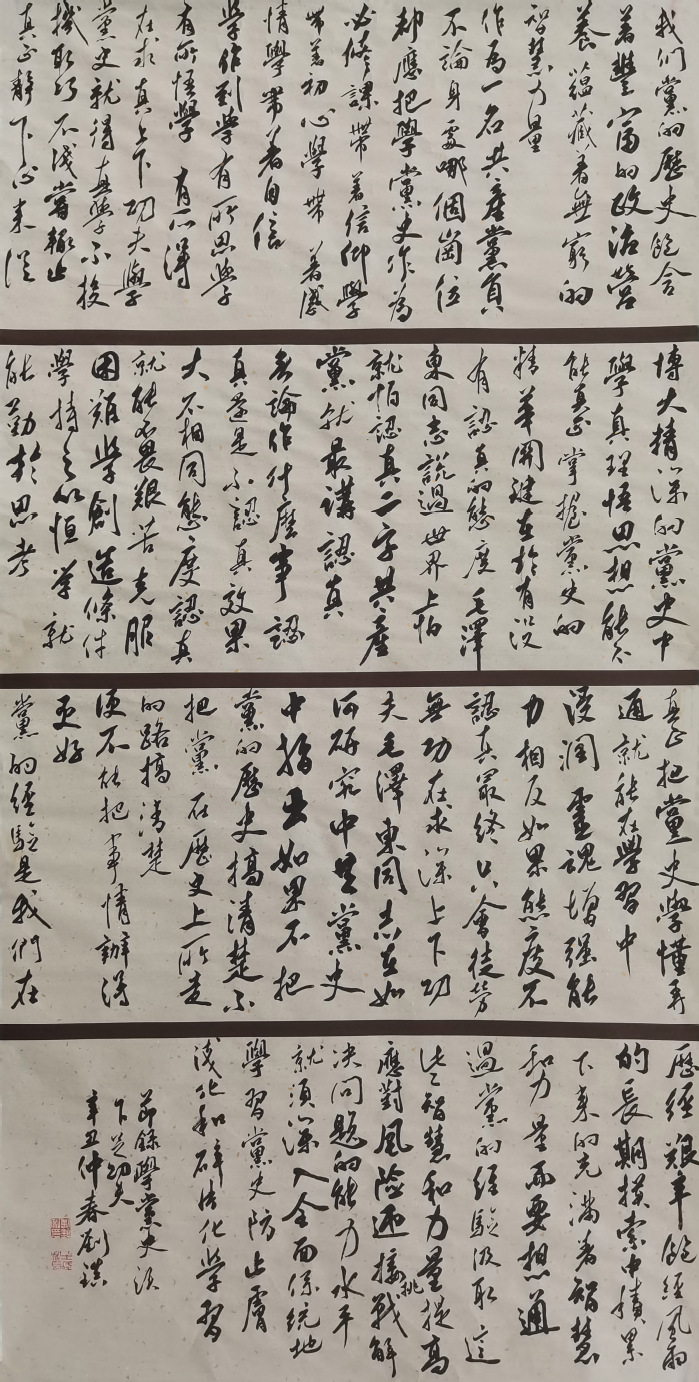 我们黨的歷史飽含
着豐富的政治營
養蘊藏着無窮的
智慧力量
作為一名共產黨員
不論身處哪個崗位
都應把學黨史作為
必修課帶着信仰學
帶着初心學帶着感
情學帶着自信
學作到學有所思學
有所悟學有所得
在求真上下功夫學
黨史就得真學不投
機取巧不淺嘗輒止
真正靜下心來從
博大精深的黨史中
學真理悟思想能不
能真正掌握黨史的
精華關鍵在於有沒
有認真的態度毛澤
東同志說過世界上怕
就怕認真二字共產
黨就最講認真
無論作什麼事認
真還是不認真效果
大不相同態度認真
就能不畏艱苦克服
困難學創造條件
學持之以恒學就
能勤於思考
真正把黨史學懂弄
通就能在學習中
浸潤靈魂增强能
力相反如果態度不
認真最終只會徒勞
無功在求深上下功
夫毛澤東同志在如
何研究中共黨史
中指出如果不把
黨的歷史搞清楚不
把黨在歷史上所走
的路搞清楚
便不能把事情辦得
更好
黨的經驗是我們在
歷經艱辛飽經風雨
的長期摸索中積累
下來的充滿着智慧
和力量而要想通
過黨的經驗汲取這
些智慧和力量提高
應對風險迎接挑戰解
決問題的能力水平
就須深入全面係統地
學習黨史防止膚
淺化和碎片化學習
節錄學黨史須
下足功夫
辛丑仲春劉璞